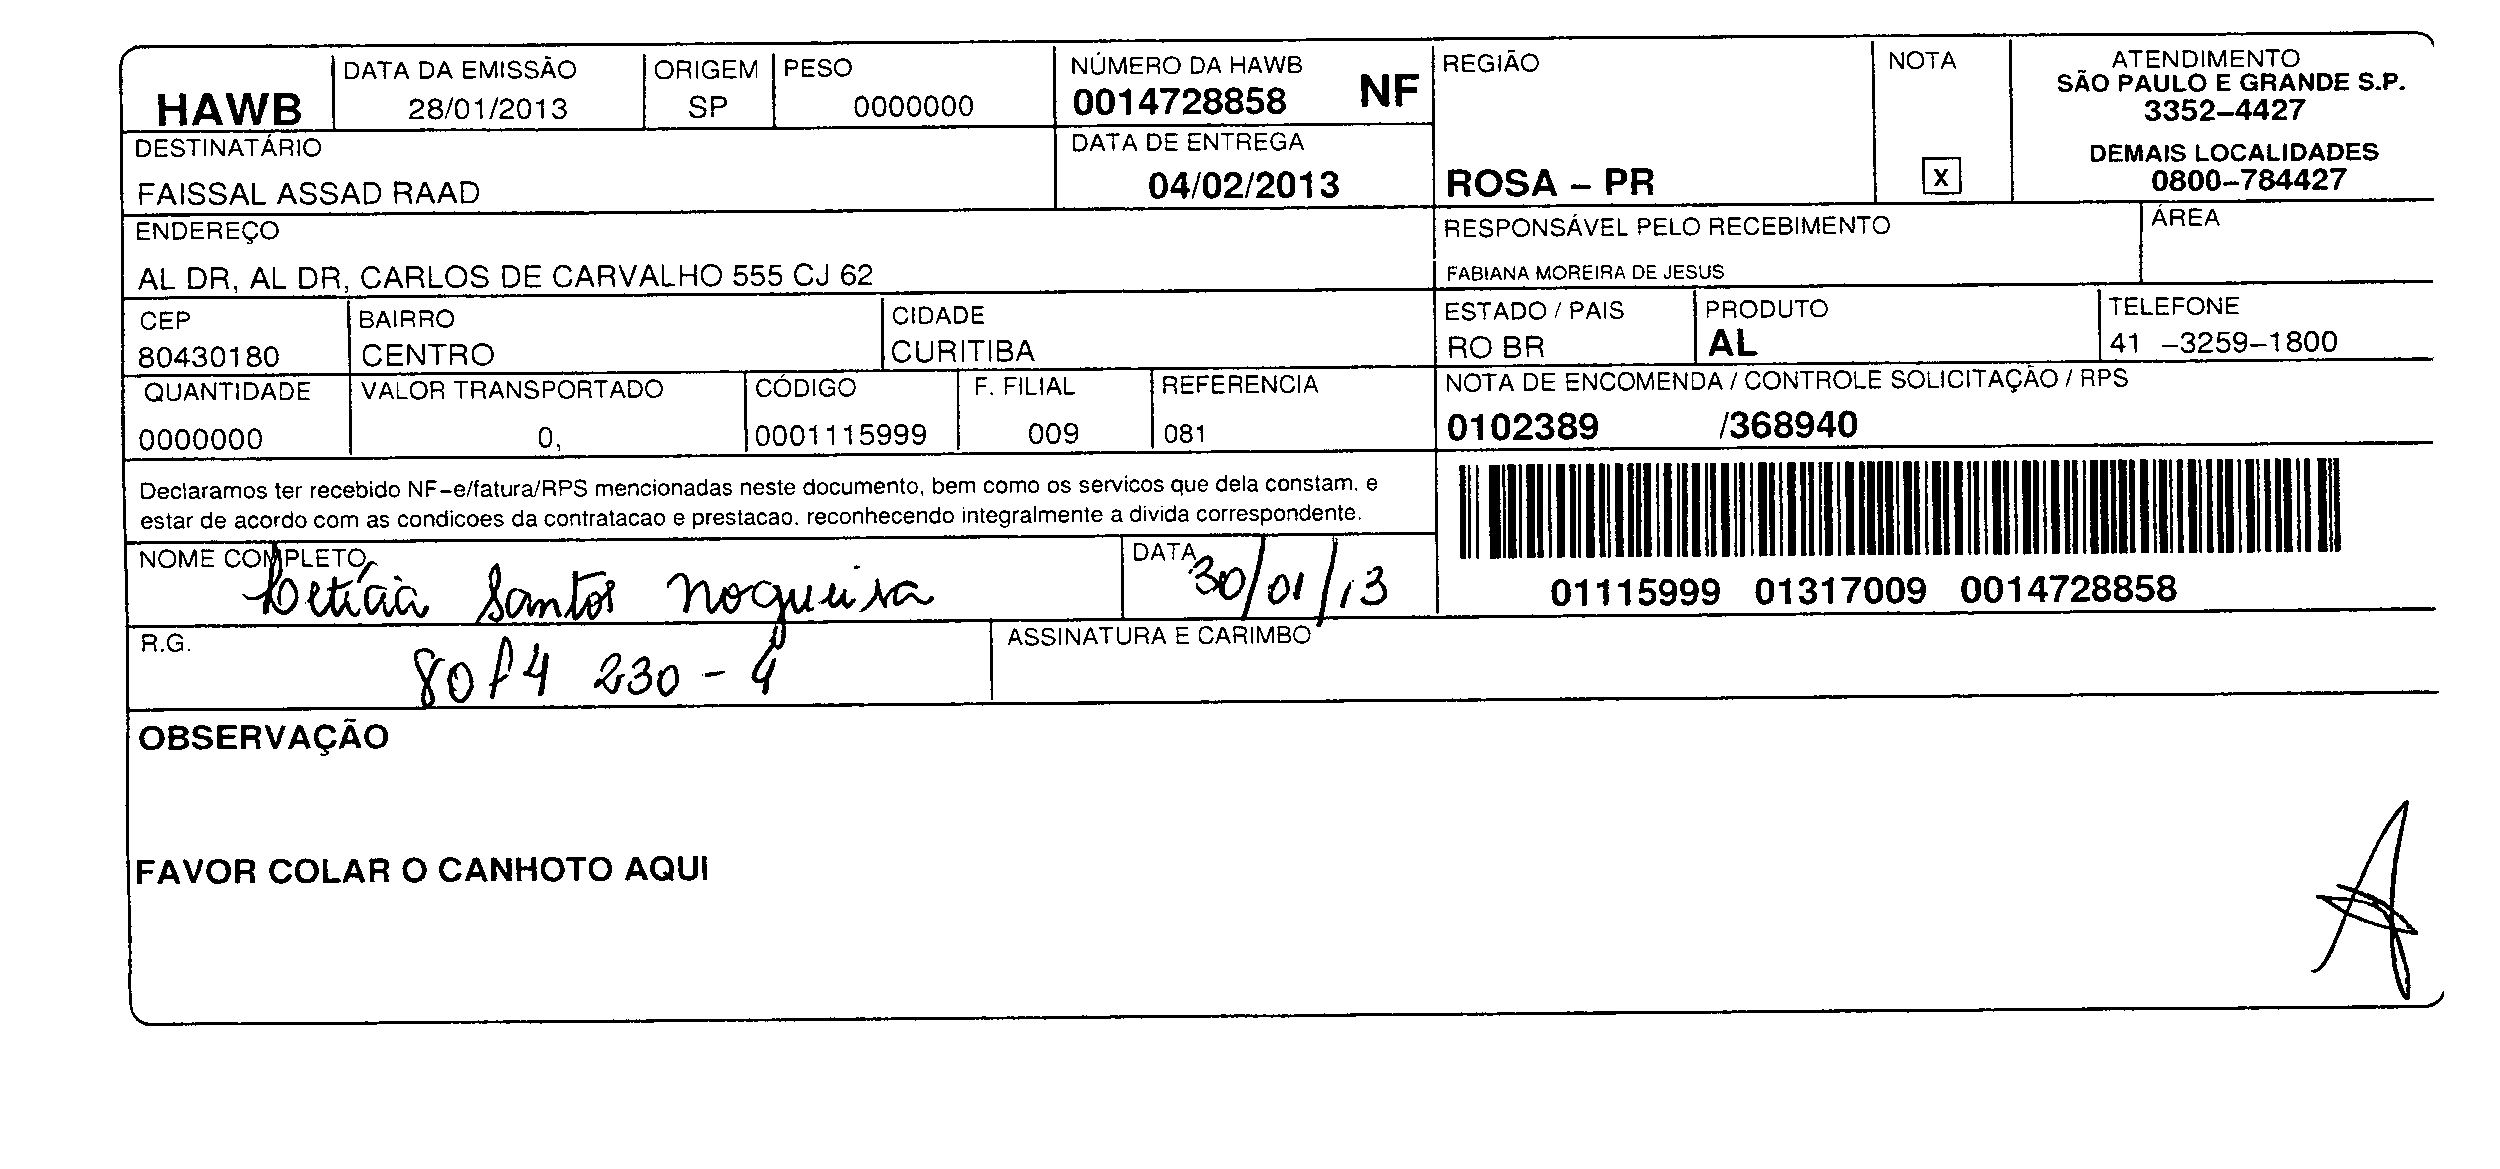 HAWB
DATA DA EMISSÃO
28/01/2013
ORIGEM
SP
PESO
0000000
NÚMERO DA HAWB
0014728858 NF
REGIÃO
ROSA – PR
NOTA
X
ATENDIMENTO
SÃO PAULO E GRANDE S.P.
3352–4427
DEMAIS LOCALIDADES
0800–784427
DESTINATÁRIO
FAISSAL ASSAD RAAD
DATA DE ENTREGA
04/02/2013
ENDEREÇO
AL DR, AL DR, CARLOS DE CARVALHO 555 CJ 62
RESPONSÁVEL PELO RECEBIMENTO
FABIANA MOREIRA DE JESUS
ÁREA
CEP
80430180
BAIRRO
CENTRO
CIDADE
CURITIBA
ESTADO / PAIS
RO BR
PRODUTO
AL
TELEFONE
41 –3259–1800
QUANTIDADE
0000000
VALOR TRANSPORTADO
0,
CÓDIGO
0001115999
F. FILIAL
009
REFERENCIA
081
NOTA DE ENCOMENDA / CONTROLE SOLICITAÇÃO / RPS
0102389 /368940
Declaramos ter recebido NF–e/fatura/RPS mencionadas neste documento, bem como os servicos que dela constam. e
estar de acordo com as condicoes da contratacao e prestacao. reconhecendo integralmente a divida correspondente.
01115999 01317009 0014728858
NOME COMPLETO
Letícia Santos Nogueira
DATA
30/01/13
R.G.
230 - 4
ASSINATURA E CARIMBO
OBSERVAÇÃO
FAVOR COLAR O CANHOTO AQUI